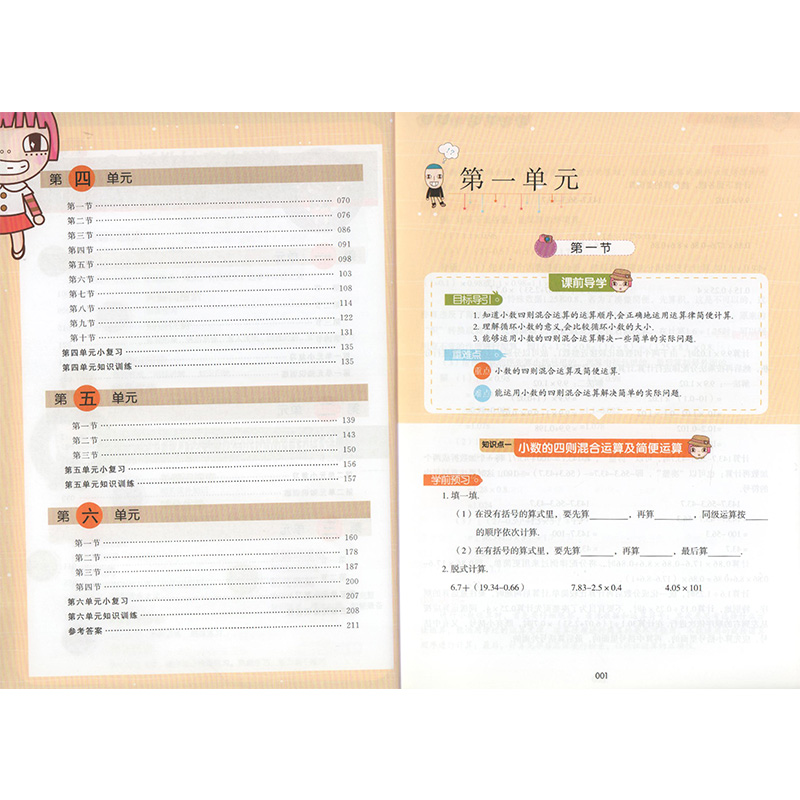 第四单元
第一节 070
第二节 076
第三节 086
第四节 091
第五节 098
第六节 103
第七节 108
第八节 114
第九节 122
第十节 131
第四单元小复习 135
第四单元知识训练 135
第五单元
第一节 139
第二节 143
第三节 150
第五单元小复习 156
第五单元知识训练 157
第六单元
第一节 160
第二节 178
第三节 187
第四节 200
第六单元小复习 207
第六单元知识训练 208
参考答案 211
第一单元
第一节
课前导学
目标导引
1. 知道小数四则混合运算的运算顺序,会正确地运用运算律简便计算.
2. 理解循环小数的意义,会比较循环小数的大小.
3. 能够运用小数的四则混合运算解决一些简单的实际问题.
重难点
重点 小数的四则混合运算及简便运算.
难点 能运用小数的四则混合运算解决简单的实际问题.
知识点一 小数的四则混合运算及简便运算
学前预习
1. 填一填.
（1）在没有括号的算式里，要先算________，再算________，同级运算按____
的顺序依次计算.
（2）在有括号的算式里，要先算________，再算________，最后算________.
2. 脱式计算.
6.7+（19.34−0.66） 7.83−2.5×0.4 4.05×101
001